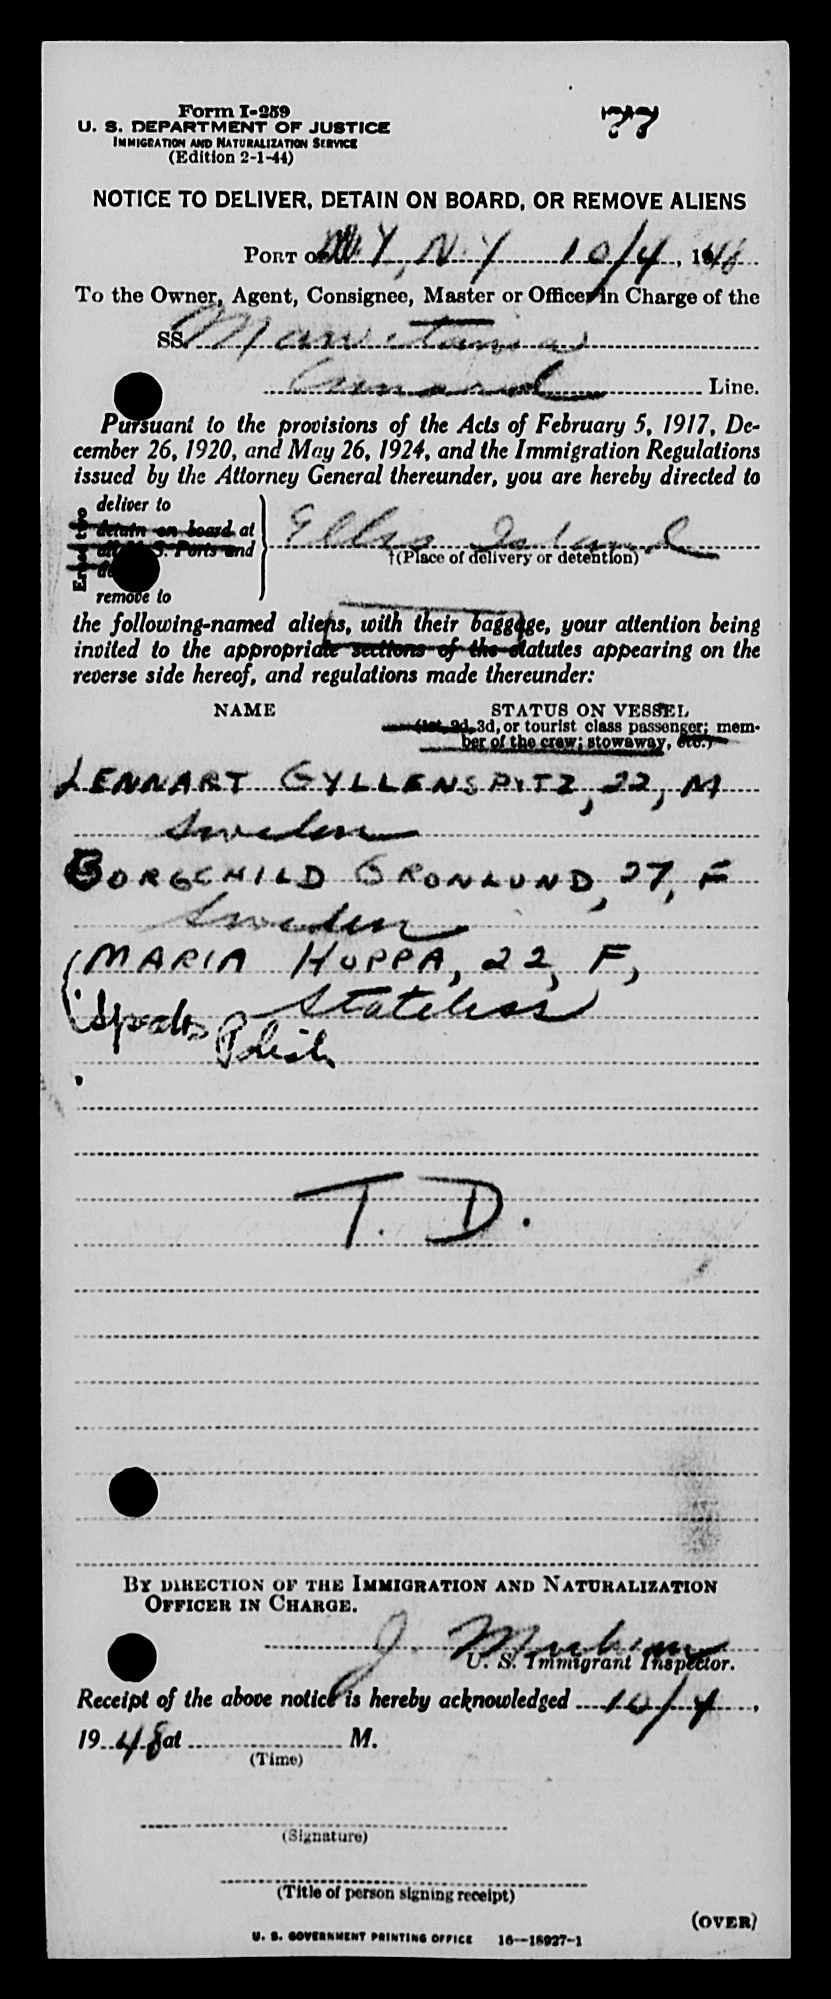 Form I-259
77
U. S. DEPARTMENT OF JUSTICE
IMMIGRATION AND NATURALIZATION SERVICE
(Edition 2-1-44)
NOTICE TO DELIVER, DETAIN ON BOARD, OR REMOVE ALIENS
PORT OF N.Y., N.Y 10/4, 1948
To the Owner, Agent, Consignee, Master or Officer in Charge of the
SS. Mauretania
Cunard Line.
Pursuant to the provisions of the Acts of February 5, 1917, De-
cember 26, 1920, and May 26, 1924, and the Immigration Regulations
issued by the Attorney General thereunder, you are hereby directed to
Erase two
deliver to
detain on board at
all U. S. Ports and
remove to
Ellis Island
†(Place of delivery or detention)
the following-named aliens, with their baggage, your attention being
invited to the appropriate sections of the statutes appearing on the
reverse side hereof, and regulations made thereunder:
NAME STATUS ON VESSEL
(1st, 2d, 3d, or tourist class passenger; mem-
ber of the crew; stowaway, etc.)
LENNART GYLLENSPITZ, 22, M
Sweden
BORGCHILD GRONLUND, 27, F
Sweden
MARIA HUPPA, 22, F,
Stateless
Speaks Polish
T. D.
BY DIRECTION OF THE IMMIGRATION AND NATURALIZATION
OFFICER IN CHARGE.
J.
U. S. Immigrant Inspector.
Receipt of the above notice is hereby acknowledged 10/4,
19 48 at M.
(Time)
(Signature)
(Title of person signing receipt)
(OVER)
U. S. GOVERNMENT PRINTING OFFICE 16—18927-1